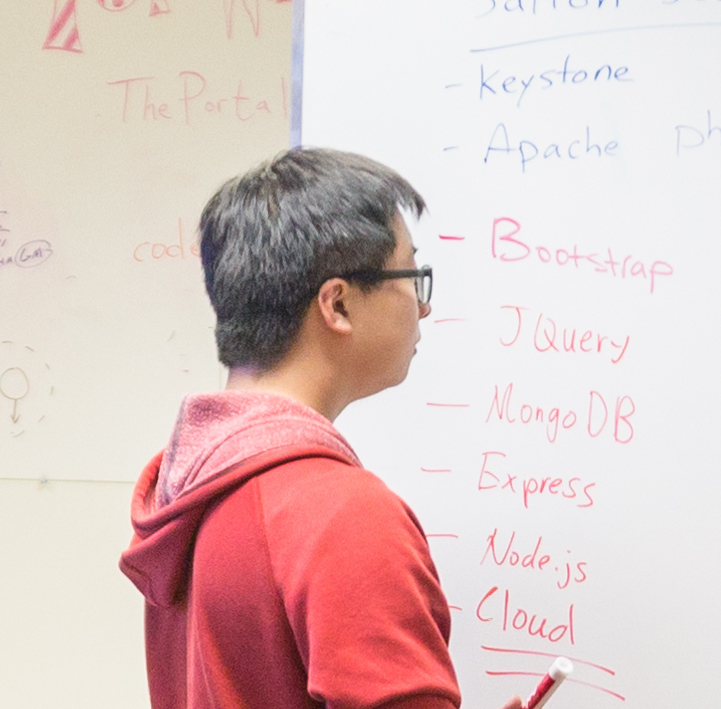 The Portal
code
- Keystone
- Apache
- Bootstrap
- JQuery
- MongoDB
- Express
- Node.js
- Cloud